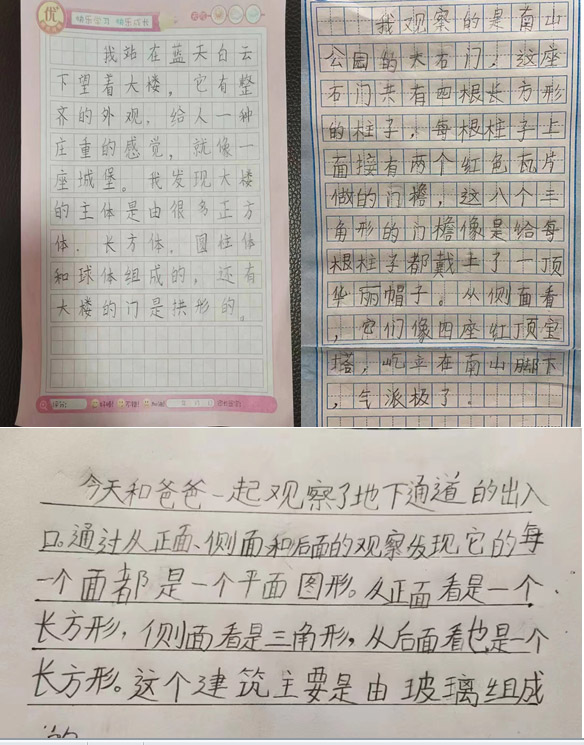 优
快乐学习 快乐成长
我站在蓝天白云
下望着大楼，它有整
齐的外观，给人一种
庄重的感觉，就像一
座城堡。我发现大楼
的主体是由很多正方
体．长方体．圆柱体
和球体组成的，还有
大楼的门是拱形的。
我观察的是南山
公园的大石门，这座
石门共有四根长方形
的柱子，每根柱子上
面接有两个红色瓦片
做的门檐，这八个三
角形的门檐像是给每
根柱子都戴上了一顶
华丽帽子。从侧面看
，它们像四座红顶宝
塔，屹立在南山脚下
，气派极了。
今天和爸爸一起观察了地下通道的出入
口。通过从正面、侧面和后面的观察发现它的每
一个面都是一个平面图形。从正面看是一个
长方形，侧面看是三角形，从后面看也是一个
长方形。这个建筑主要是由玻璃组成